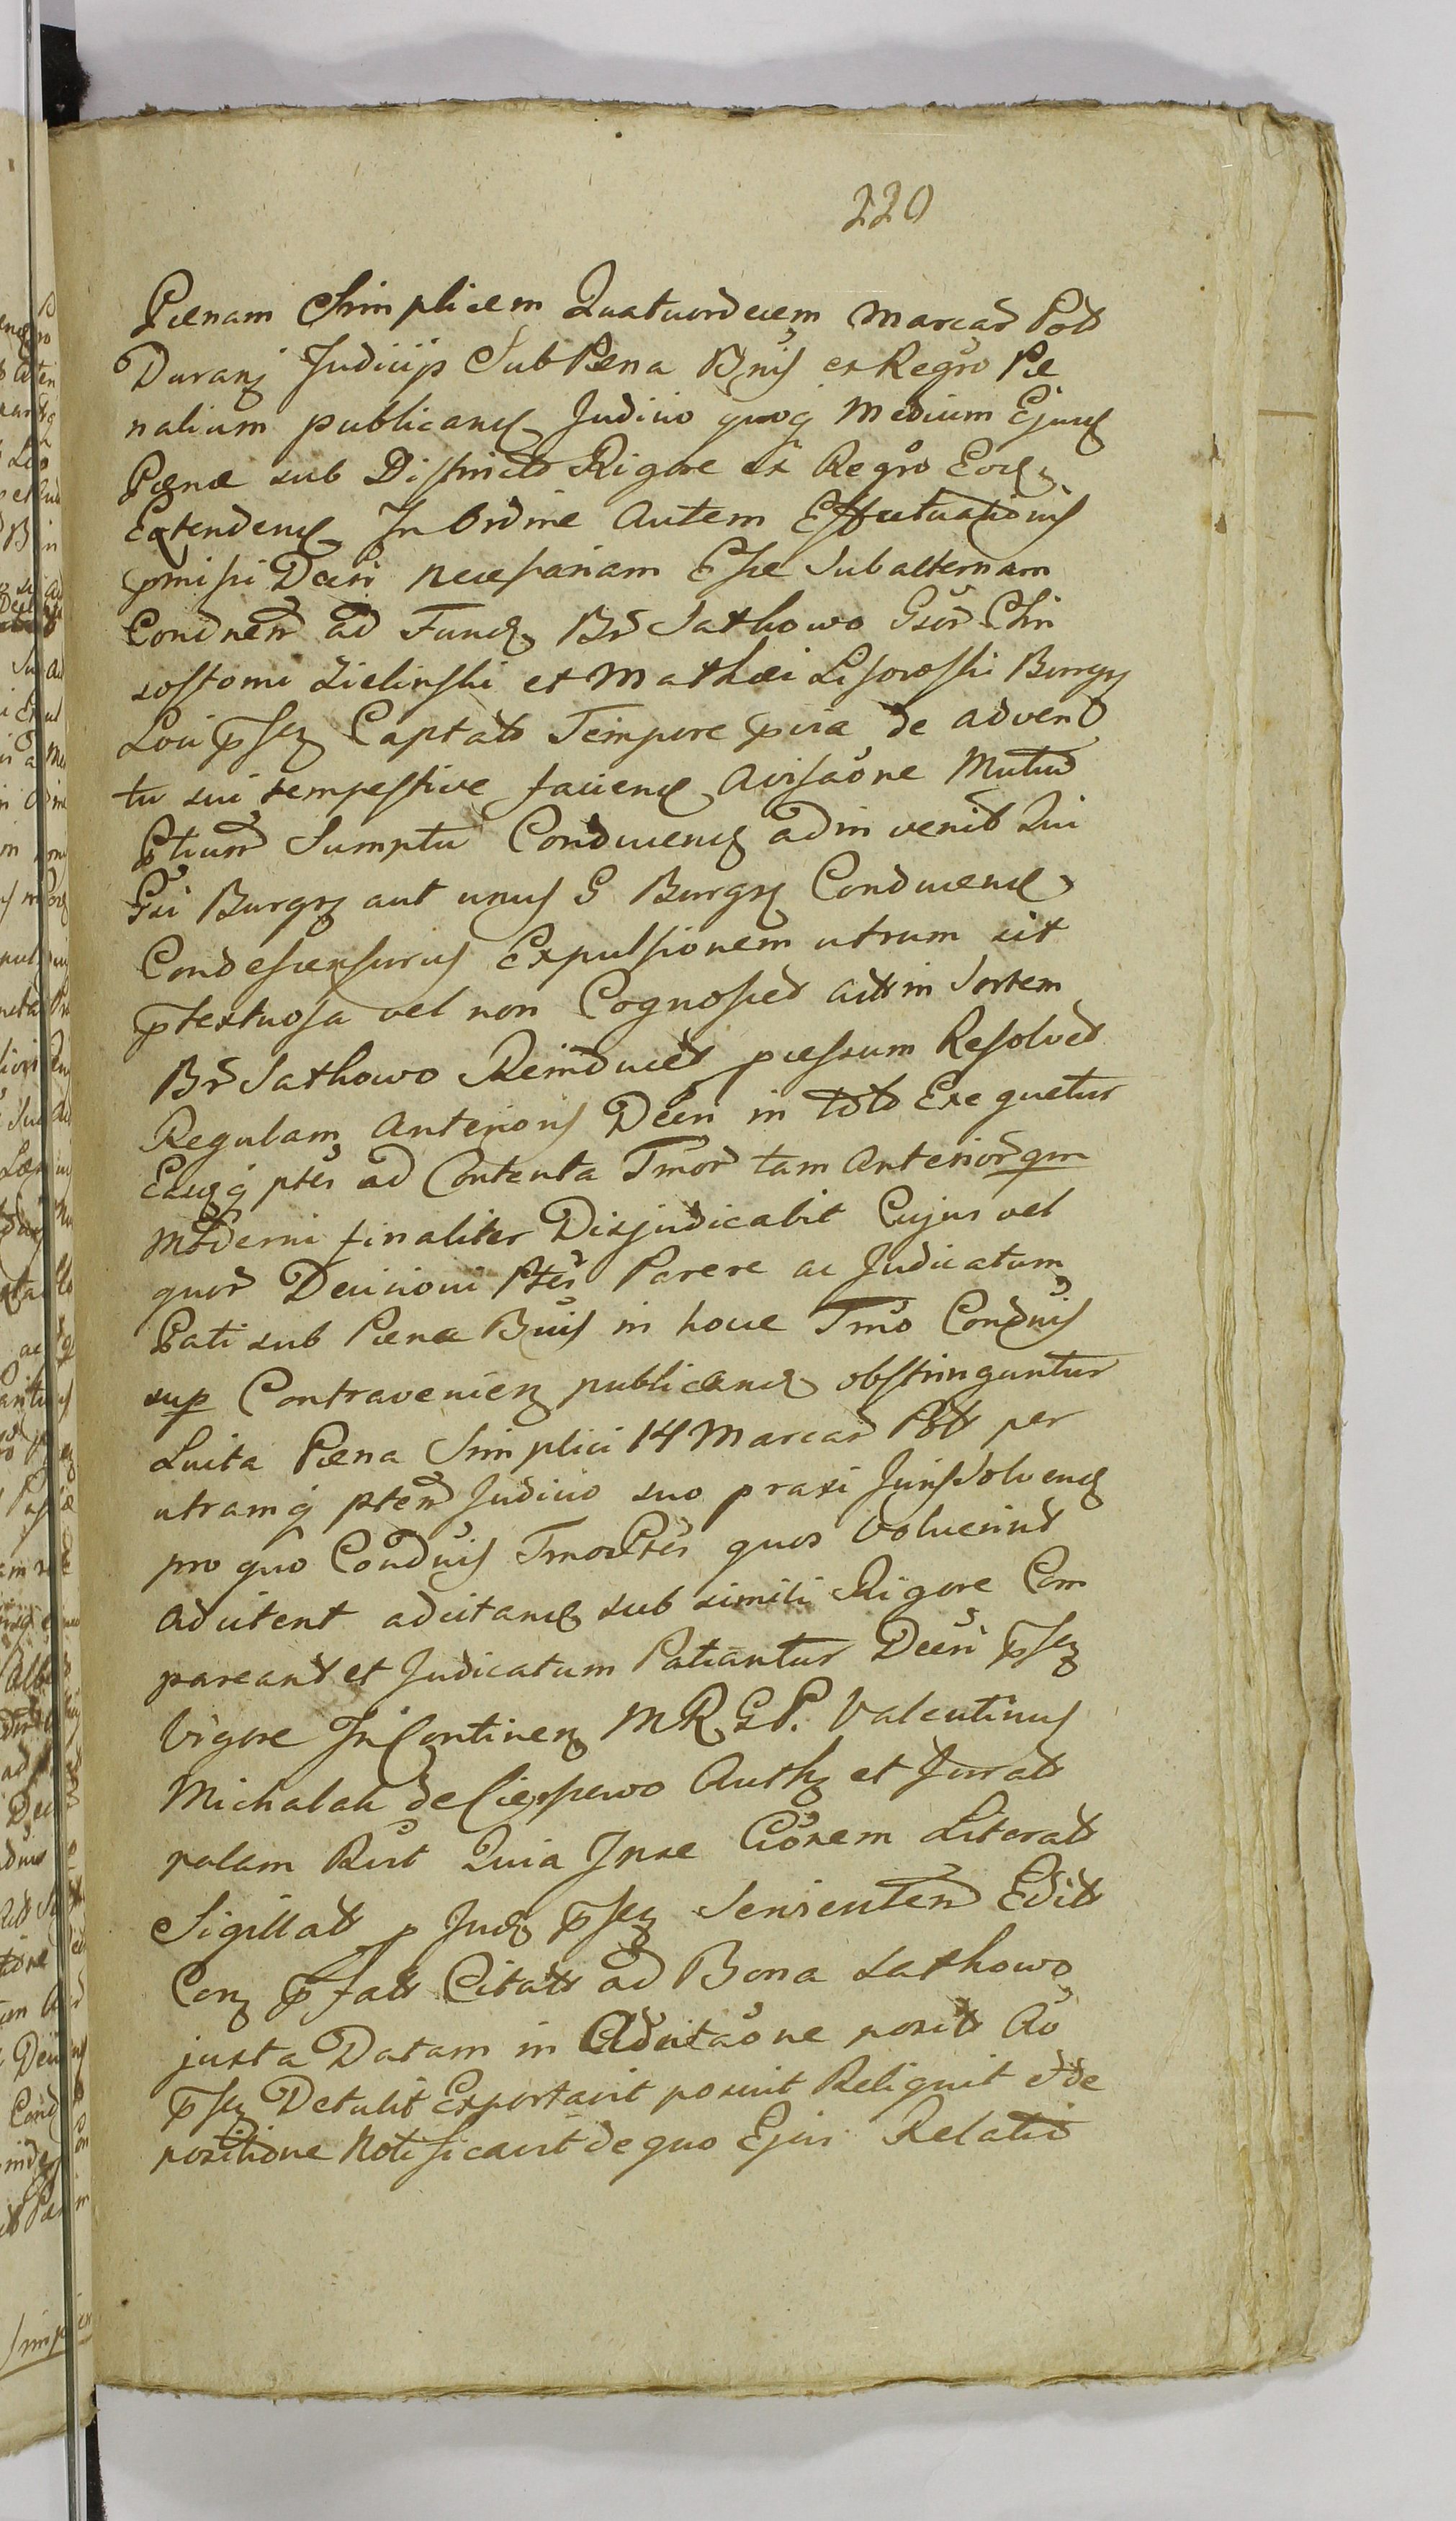 220
Pœnam Simplicem Quatuordecem Marcar Pol
Duranʒ Judicijs Sub Pæna Bniʃ ex Regro Pæ
nalium publicanꝺ Judicio quoq Medium Ejusꝺ
Pœnæ sub Districto Rigore ex Regro Eoꝺ
Extendenꝺ In Ordine Autem Effectuationis
pmissi Decri necessariam Esse Subalternam
Condnem ad Funꝺ Br Sathowo Gsor Chri
sostomi Zielinski et Mathæi Lisowski Burgʒ
Loci pseʒ Captato Tempore pvia de adven
tu sui tempestive facienꝺ Avisaone Mutuo
Ptium Sumptu Conducenꝺ adinvenit Qui
Gsi Burgʒ aut unus G Burgʒ Conducenꝺ
Condescensurus Expulsionem utrum sit
ptextuosa vel non Cognoscet actt in Sortem
Br Sathowo Reinducet pressum Resolvet
Regulam Anterioris Decri in toto Exequetur
Easqꝫ ptes ad Contenta Tmor tam Anterior qm
Moderni finaliter Disjudicabit Cujus vel
quor Decisioni Ptes Parere ac Judicatum
Pati sub Pæna Bniʃ in hocce Tmo Condnis
sup Contravenienʒ publicanꝺ obstringuntur
Luita Pæna Simplici 14 Marcar Pol per
utramq ptem Judicio suo praxi Juris Solvenꝺ
pro quo Condnis Tmo Ptes quos Voluerint
adcitent adcitanꝺ sub simili Rigore Com
pareant et Judicatum Patiantur Decri pseʒ
Vigore In Continenʒ MR GP. Valentinus
Michalak de Authʒ et Jurats
palam Rcit Quia Inse Ciōnem Literat
Sigillat p Juꝺ pseʒ Serientem Edit
Conʒ pfat Citats ad Bona Sathowo
juxta Datam in Adcitaone posit Ao
pseʒ Detulit Exportavit posuit Reliquit et de
positione Notificavit de quo Ejus Relatio